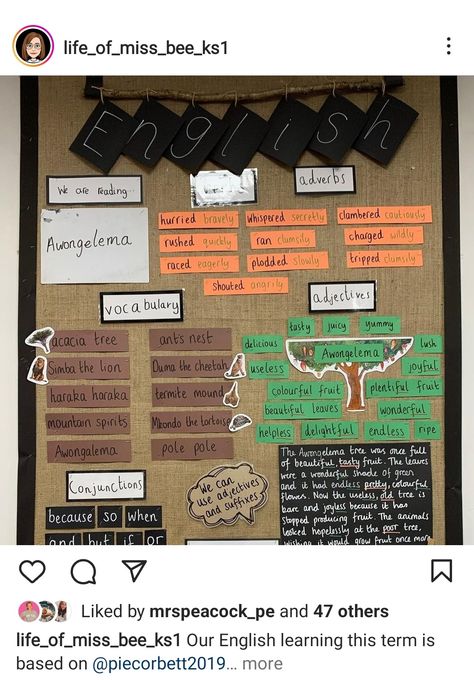 life_of_miss_bee_ks1
English
We are reading...
adverbs
Awongelema
hurried bravely
whispered secretly
clambered cautiously
rushed quickly
ran clumsily
charged wildly
raced eagerly
plodded slowly
tripped clumsily
shouted angrily
vocabulary
adjectives
acacia tree
ant's nest
Simba the lion
Duma the cheetah
haraka haraka
termite mound
mountain spirits
Mkondo the tortoise
Awongalema
pole pole
tasty
juicy
yummy
delicious
Awongelema
lush
useless
joyful
colourful fruit
plentiful fruit
beautiful leaves
wonderful
helpless
delightful
endless
ripe
Conjunctions
because
so
when
and
but
if
or
We can
use adjectives
and suffixes
The Awongelema tree was once full
of beautiful, tasty fruit. The leaves
were a wonderful shade of green
and it had endless pretty, colourful
flowers. Now the useless, old tree is
bare and joyless because it has
stopped producing fruit. The animals
looked hopelessly at the poor tree,
wishing it would grow fruit once more
Liked by mrspeacock_pe and 47 others
life_of_miss_bee_ks1 Our English learning this term is
based on @piecorbett2019... more